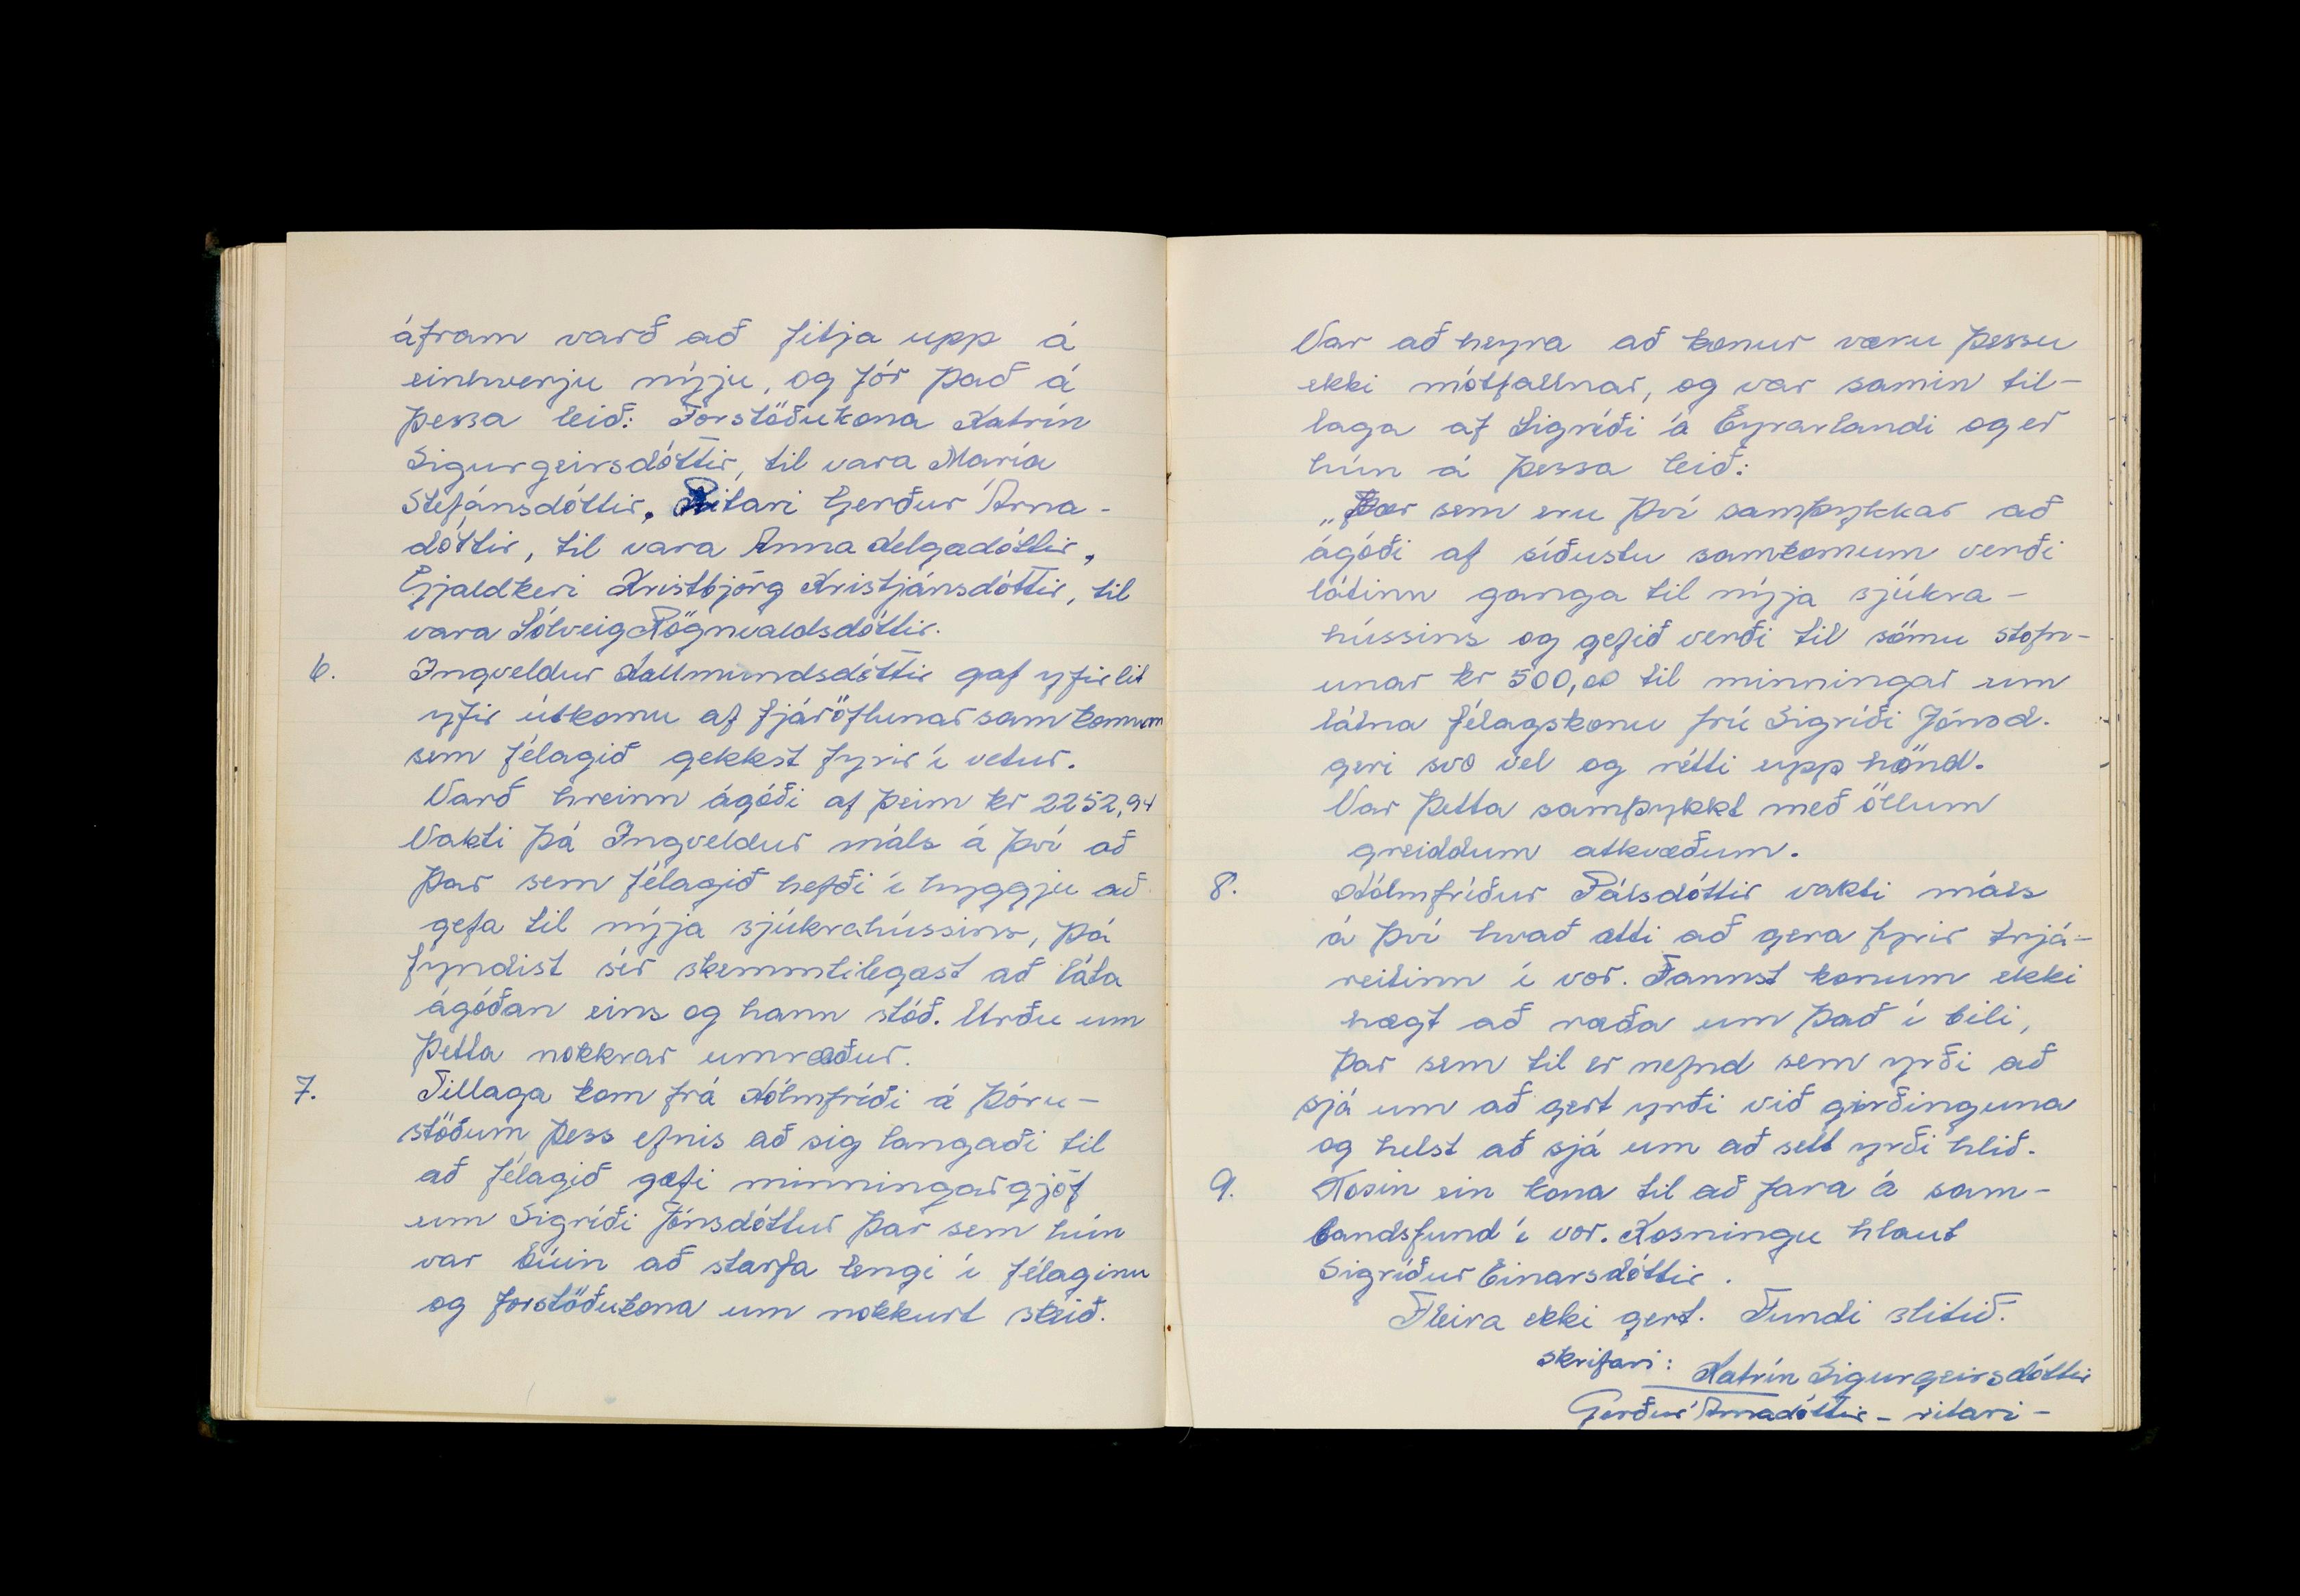 áfram varð að fitja upp á
einhverju nýju, og fór það á
þessa leið: Forstöðukona Katrín
Sigurgeirsdóttir, til vara María
Stefánsdóttir, Ritari Gerður Árna-
dóttir, til vara Anna Helgadóttir,
Gjaldkeri Kristbjörg Kristjánsdóttir, til
vara Sólveig Rögnvaldsdóttir.
6. Ingveldur Hallmundsdóttir gaf yfirlit
yfir útkomu af fjáröflunarsamkomum
sem félagið gekkst fyrir í vetur.
Varð hreinn ágóði af þeim kr 2252,94
Vakti þá Ingveldur máls á því að
þar sem félagið hefði í hyggju að
gefa til nýja sjúkrahússins, þá
fyndist sér skemmtilegast að láta
ágóðan eins og hann stóð. Urðu um
þetta nokkrar umræður.
7. Tillaga kom frá Hólmfríði á Þóru-
stöðum, þess efnis að sig langaði til
að félagið gæfi minningargjöf
um Sigríði Jónsdóttur þar sem hún
var búin að starfa lengi í félaginu
og forstöðukona um nokkurt skeið.
Var að heyra að konur væru þessu
ekki mótfallnar, og var samin til-
laga af Sigríði á Eyrarlandi og er
hún á þessa leið:
„Þær sem eru því samþykkar að
ágóði af síðustu samkomum verði
látinn ganga til nýja sjúkra-
hússins og gefið verði til sömu stofn-
unar kr 500,00 til minningar um
látna félagskonu frú Sigríði Jónsd.
geri svo vel og rétti upp hönd.
Var þetta samþykkt með öllum
greiddum atkvæðum.
8. Hólmfríður Pálsdóttir vakti máls
á því hvað ætti að gera fyrir trjá-
reitinn í vor. Fannst konum ekki
hægt að ræða um það í bili,
þar sem til er nefnd sem yrði að
sjá um að gert yrði við girðinguna
og helst að sjá um að sett yrði hlið.
9. Kosin ein kona til að fara á sam-
bandsfund í vor. Kosningu hlaut
Sigríður Einarsdóttir.
Fleira ekki gert. Fundi slitið.
skrifari: Katrín Sigurgeirsdóttir
Gerður Árnadóttir - ritari -